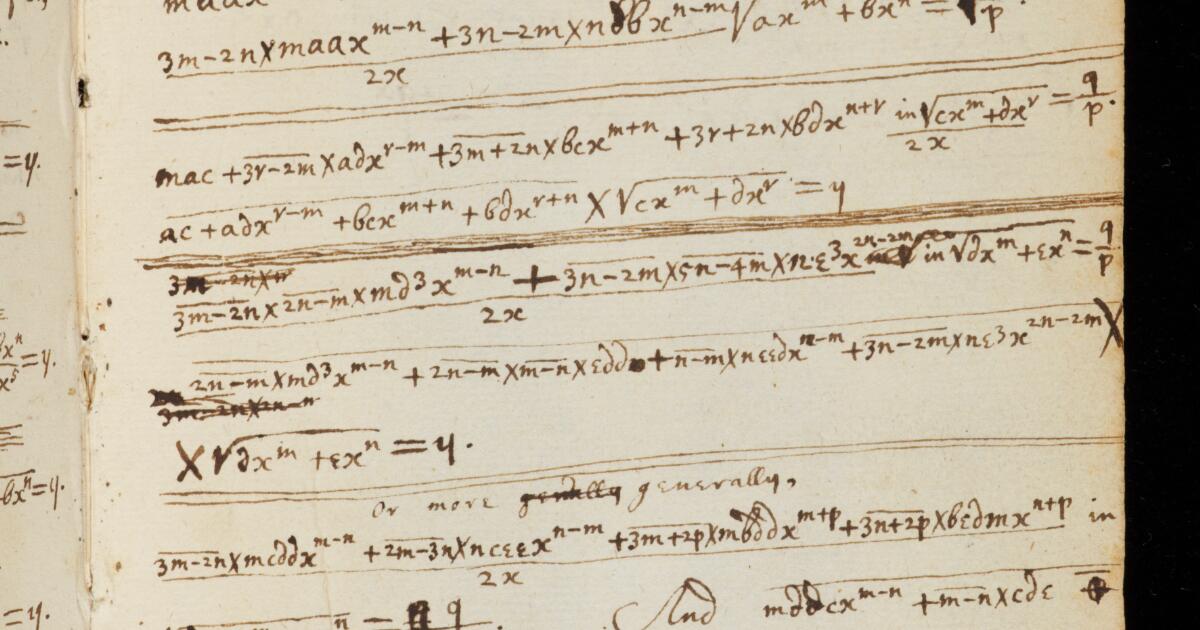 =y.
=y.
bx^n=y.
=y.
maax
3m-2n X maax^{m-n} +3n-2m X nbbx^{n-m} √ax^m +bx^n = q/p.
2x
mac +3r-2m X adx^{r-m} +3m+2n X bcx^{m+n} +3r+2n X bdx^{n+r} in √cx^m +dx^r = q/p.
2x
ac +adx^{r-m} +bcx^{m+n} +bdx^{r+n} X √cx^m +dx^r = y
3m-2n X n
3m-2n X 2n-m X md^3x^{m-n} + 3n-2m X 5n-4m X nε^3x^{2n-2m} in √dx^m +εx^n = q/p
2x
2n-m X md^3x^{m-n} +2n-m X m-n X εdd +n-m X nεεdx^{n-m} +3n-2m X nε^3x^{2n-2m} X
3m-2n X 2n-n
X √dx^m +εx^n = y.
Or more generally,
3m-2n X mcddx^{m-n} +2m-3n X ncεεx^{n-m} +3m+2p X mbddx^{m+p} +3n+2p X bεdmx^{n+p} in
2x
n = q
And mddcx^{m-n} +m-n X cdε